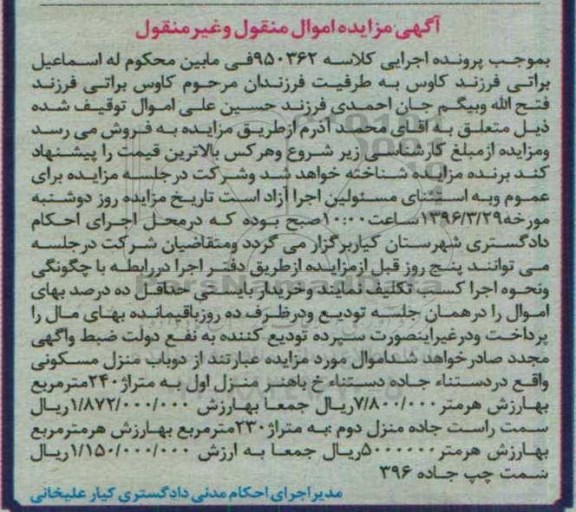 آگهی مزایده اموال منقول وغیرمنقول
بموجب پرونده اجرایی کلاسه ۹۵۰۳۶۲فی مابین محکوم له اسماعیل
براتی فرزند کاوس به طرفیت فرزندان مرحوم کاوس براتی فرزند
فتح الله وبیگم جان احمدی فرزند حسین علی اموال توقیف شده
ذیل متعلق به اقای محمد آذرم ازطریق مزایده به فروش می رسد
ومزایده ازمبلغ کارشناسی زیر شروع وهرکس بالاترین قیمت را پیشنهاد
کند برنده مزایده شناخته خواهد شد وشرکت درجلسه مزایده برای
عموم وبه استثنای مسئولین اجرا آزاد است تاریخ مزایده روز دوشنبه
مورخه۱۳۹۶/۳/۲۹ساعت۱۰:۰۰صبح بوده که درمحل اجرای احکام
دادگستری شهرستان کیاربرگزار می گردد ومتقاضیان شرکت درجلسه
می توانند پنج روز قبل ازمزایده ازطریق دفتر اجرا دررابطه با چگونگی
ونحوه اجرا کسب تکلیف نمایند وخریدار بایستی حداقل ده درصد بهای
اموال را درهمان جلسه تودیع ودرظرف ده روزباقیمانده بهای مال را
پرداخت ودرغیراینصورت سپرده تودیع کننده به نفع دولت ضبط واگهی
مجدد صادرخواهد شداموال مورد مزایده عبارتند از دوباب منزل مسکونی
واقع دردستناء جاده دستناء خ باهنر منزل اول به متراژ۲۴۰مترمربع
بهارزش هرمتر۷/۸۰۰/۰۰۰ریال جمعا بهارزش ۱/۸۷۲/۰۰۰/۰۰۰ریال
سمت راست جاده منزل دوم :به متراژ۲۳۰مترمربع بهارزش هرمترمربع
بهارزش هرمتر۵۰۰۰۰۰۰ریال جمعا به ارزش ۱/۱۵۰/۰۰۰/۰۰۰ریال
سمت چپ جاده ۳۹۶
مدیراجرای احکام مدنی دادگستری کیار علیخانی